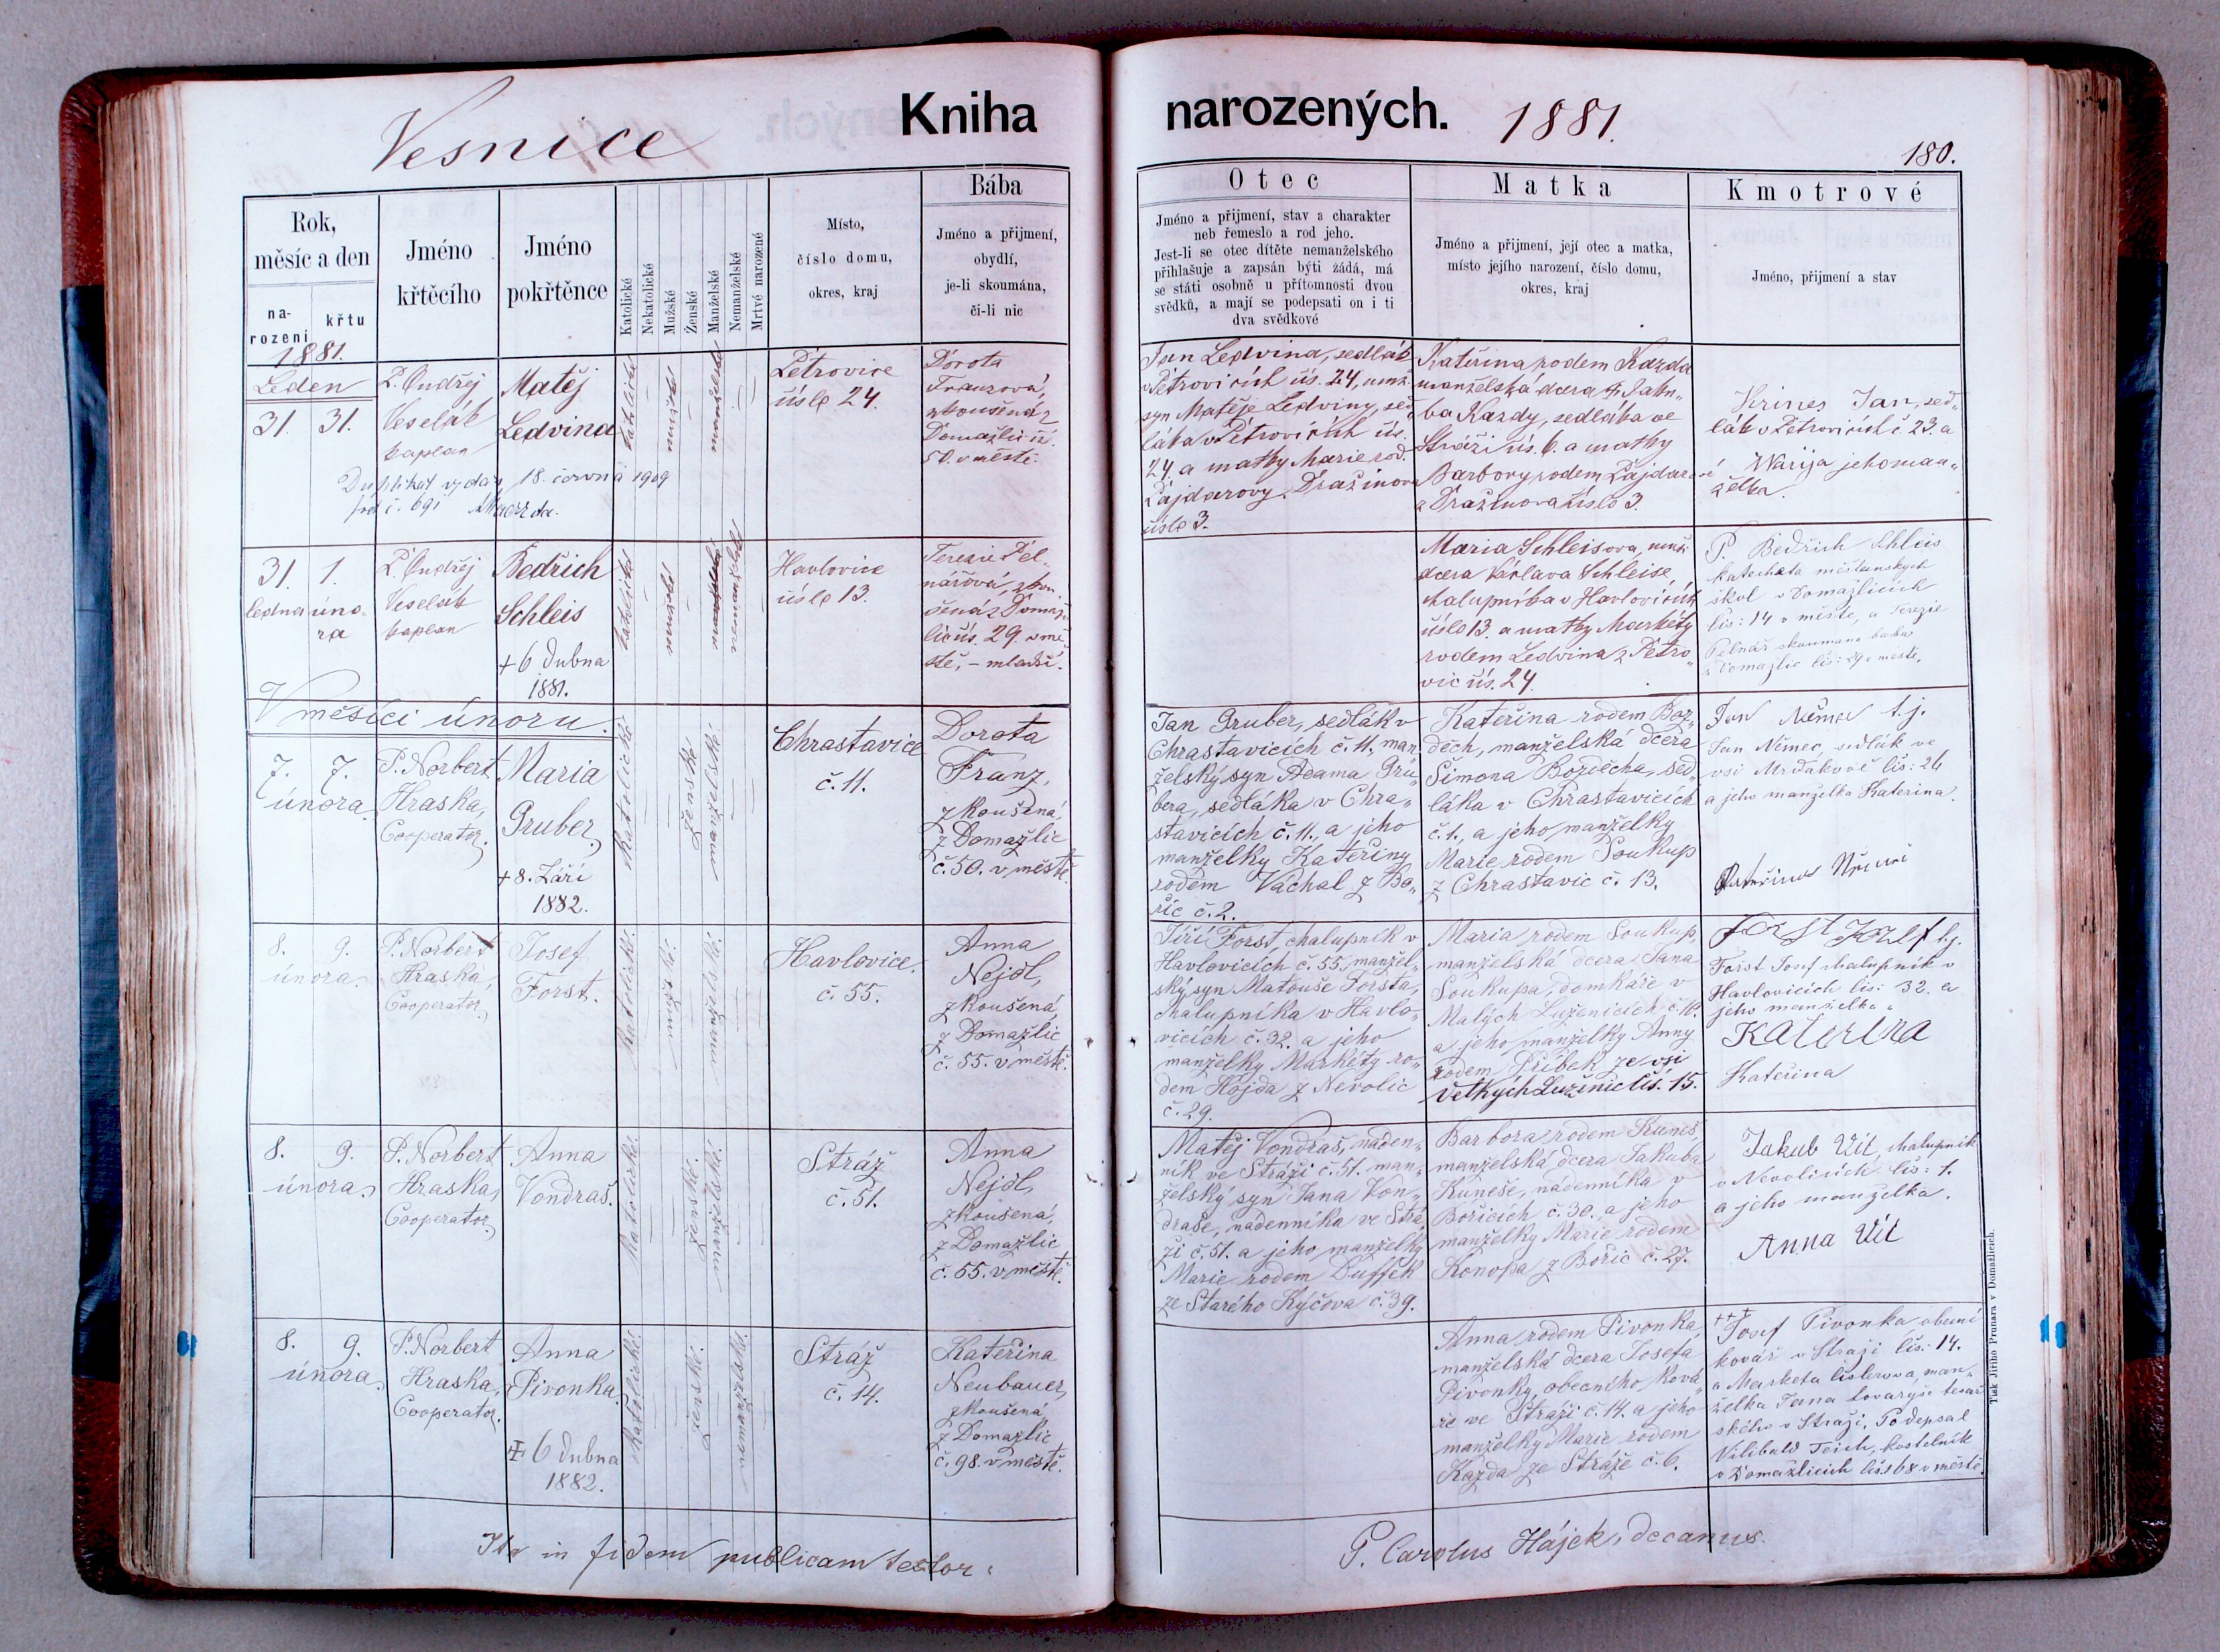 Vesnice
Kniha
narozených.
1881.
180.
Rok,
měsíc a den
na-
rození
křtu
Jméno
křtěcího
Jméno
pokřtěnce
Katolické
Nekatolické
Mužské
Ženské
Manželské
Nemanželské
Mrtvé narozené
Místo,
číslo domu,
okres, kraj
Bába
Jméno a přijmení,
obydlí,
je-li skoumána,
či-li nic
Otec
Jméno a přijmení, stav a charakter
neb řemeslo a rod jeho.
Jest-li se otec dítěte nemanželského
přihlašuje a zapsán býti žádá, má
se státi osobně u přítomnosti dvou
svědků, a mají se podepsati on i ti
dva svědkové
Matka
Jméno a přijmení, její otec a matka,
místo jejího narození, číslo domu,
okres, kraj
Kmotrové
Jméno, přijmení a stav
1881.
Leden
31. 31.
P. Ondřej
Veselák
kaplan
Matěj
Ledvina
Duplikat vydán 18. června 1909
Petrovice
číslo 24.
Dorota
Franzová,
zkoušená z
Domažlic č.
50. v městě.
Jan Ledvina, sedlák
v Petrovicích čís. 24, manž.
syn Matěje Ledviny, sed-
láka v Petrovicích čís.
24. a matky Marie rod.
Pajdarovy z Dražinova
číslo 3.
Kateřina rodem Kazda
manželská dcera Jaku-
ba Kazdy, sedláka ve
Stráži čís. 6. a matky
Barbory rodem Pajdarové
z Dražinova číslo 3.
Krines Jan, sed-
lák v Petrovicích č. 23. a
Marija jeho man-
želka.
31. 1.
ledna úno-
ra
P. Ondřej
Veselák
kaplan
Bedřich
Schleis
+ 6 dubna
1881.
katolické
nemanželské
Havlovice
číslo 13.
Terezie Pel-
nářová, zkou-
šená z Domaž-
lic čís. 29. v mě-
stě, – mladší.
Maria Schleisova, manž.
dcera Václava Schleise,
chalupníka v Havlovicích
číslo 13. a matky Markéty
rodem Ledvina z Petro-
vic čís. 24.
P. Bedřich Schleis
katecheta městanskych
škol v Domažlicích
čís: 14 v městě, a Terezie
Pelnář skoumana baba
z Domažlic čís: 29 v městě.
V měsíci únoru.
7. 7.
února
P. Norbert
Hraska,
Cooperator.
Maria
Gruber
+ 8. Září
1882.
Katolické
ženské.
manželské.
Chrastavice
č. 11.
Dorota
Franz,
zkoušená,
z Domažlic
č. 50. v městě.
Jan Gruber, sedlák v
Chrastavicích č. 11., man-
želský syn Adama Gru-
bera, sedláka v Chra-
stavicích č. 11., a jeho
manželky Kateřiny
rodem Váchal z Bo-
řic č. 2.
Kateřina rodem Boz-
děch, manželská dcera
Šimona Bozděcha, sed-
láka v Chrastavicích
č. 1., a jeho manželky
Marie rodem Soukup
z Chrastavic č. 13.
Jan Němec t. j.
Jan Němec, sedlák ve
vsi Mrdakově čís: 26
a jeho manželka Kateřina.
8. 9.
února.
P. Norbert
Hraska,
Cooperator.
Josef
Forst.
Katolické.
mužské.
manželské.
Havlovice.
č. 55.
Anna
Nejdl,
zkoušená,
z Domažlic
č. 55. v městě.
Jiří Forst, chalupník v
Havlovicích č. 55. manžel-
ský syn Matouše Forsta,
chalupníka v Havlo-
vicích č. 32. a jeho
manželky Markéty ro-
dem Hojda z Nevolic
č. 29.
Maria rodem Soukup,
manželská dcera Jana
Soukupa, domkáře v
Malých Luženicích č. 10.
a jeho manželky Anny
rodem Příbek ze vsi
Velkych Luženic čís. 15.
Forst Josef t.j.
Forst Josef chalupník v
Havlovicích čís: 32. a
jeho manželka
Katerina
Kateřina
8. 9.
února.
P. Norbert
Hraska,
Cooperator.
Anna
Vondraš.
Katolické.
ženské.
manželské.
Stráž
č. 51.
Anna
Nejdl,
zkoušená,
z Domažlic
č. 55. v městě.
Matěj Vondraš, náden-
ník ve Stráži č. 51. man-
želský syn Jana Von-
draše, nádenníka ve Strá-
ži č. 51. a jeho manželky
Marie rodem Duffek
ze Starého Kýčova č. 39.
Barbora rodem Kuneš,
manželská dcera Jakuba
Kuneše, nádenníka v
Bořicích č. 30. a jeho
manželky Marie rodem
Konopa z Bořic č. 27.
Jakub Vít, chalupník
v Nevolicích čís: 1.
a jeho manželka.
Anna Vít
8. 9.
února.
P. Norbert
Hraska,
Cooperator.
Anna
Pivonka
+ 6 dubna
1882.
Katolické.
ženské.
nemanželské.
Stráž
č. 14.
Kateřina
Neubauer,
zkoušená
z Domažlic
č. 98. v městě.
Anna rodem Pivonka,
manželská dcera Josefa
Pivonky, obecního ková-
ře ve Stráži č. 14. a jeho
manželky Marie rodem
Kazda ze Stráže č. 6.
+++
Josef Pivonka obecní
kovář v Straži čís: 14.
a Marketa Cislerova, man-
želka Jana tovaryše tesař
ského v Straži. Podepsal
Vilibald Teich, kostelník
v Domažlicích čís 168 v městě.
Ita in fidem publicam testor:
P. Carolus Hájek, decanus.
Tisk Jiřího Prunara v Domažlicích.